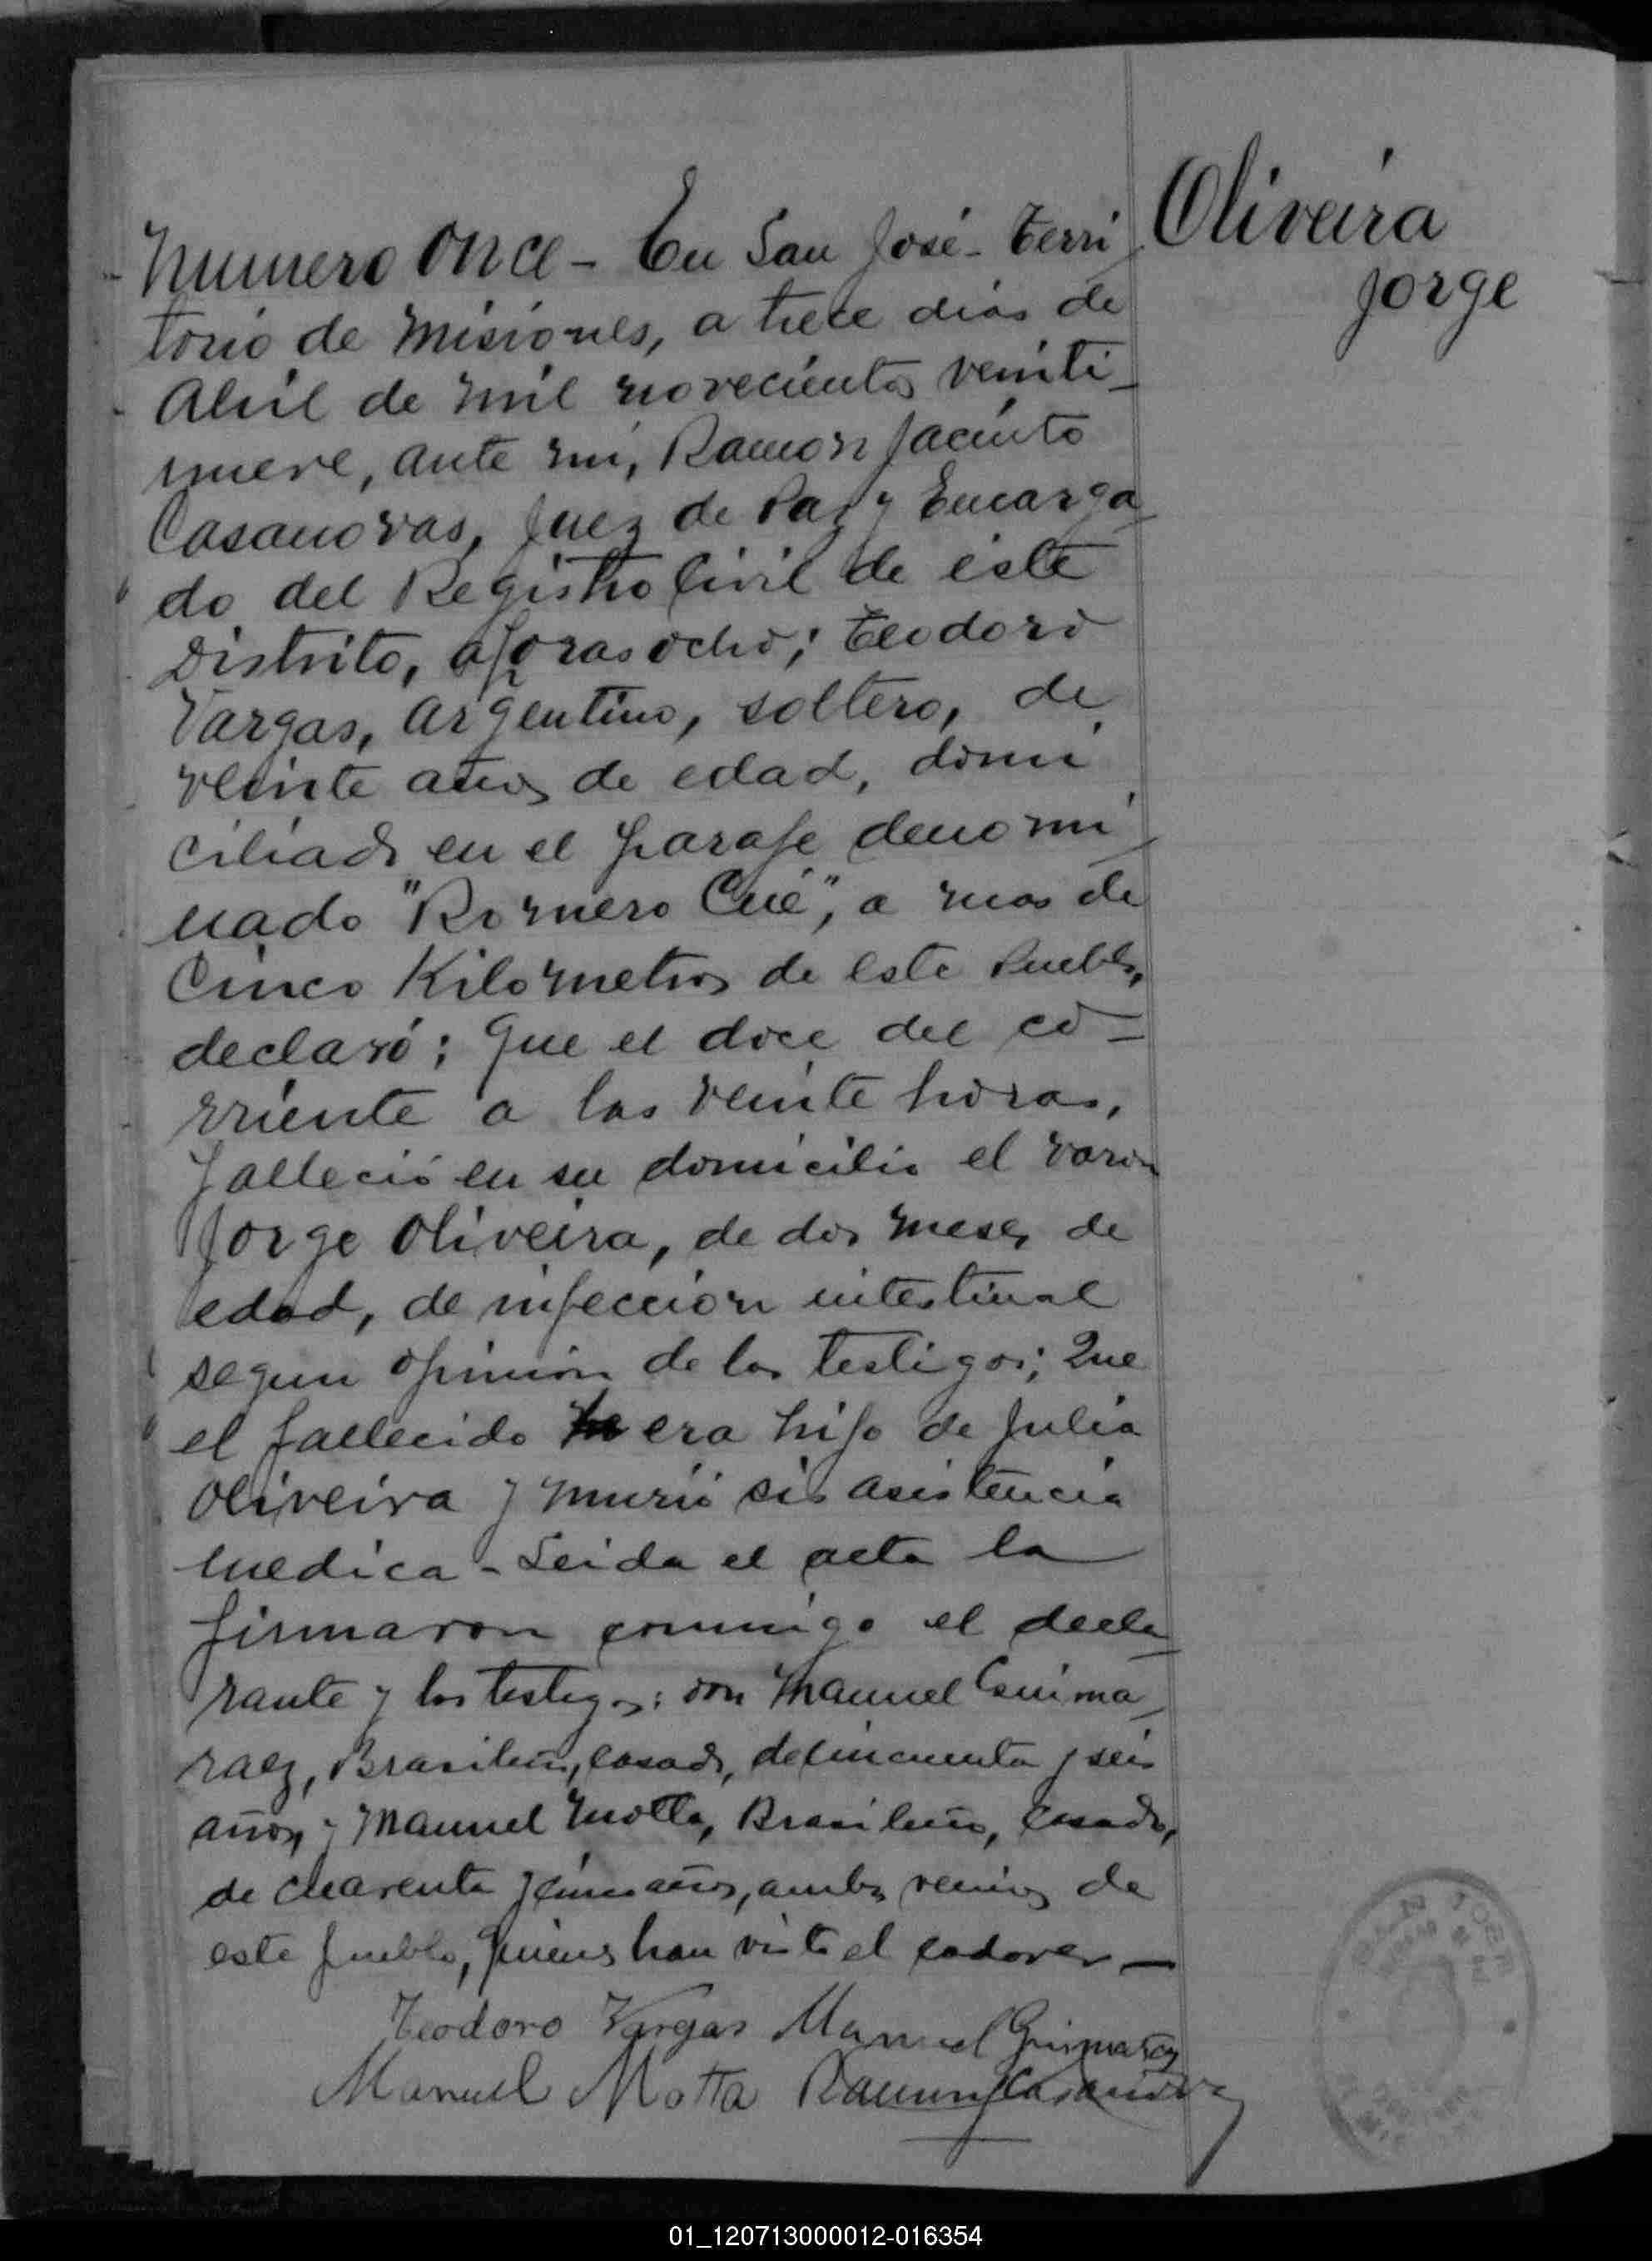 Oliveira
Jorge
Numero Once - En San José - Terri
torio de Misiones, a trece dias de
Abril de mil novecientos veinti-
nueve, ante mi, Ramon Jacinto
Casanovas, Juez de Paz y Encarga
do del Registro Civil de este
Distrito, a horas ocho; Teodoro
Vargas, Argentino, soltero, de
veinte años de edad, domi
ciliado en el paraje denomi
nado "Romero Cué", a mas de
Cinco Kilometros de este Pueblo,
declaró; Que el doce del co-
rriente a las veinte horas,
falleció en su domicilio el varon
Jorge Oliveira, de dos meses de
edad, de infeccion intestinal
segun opinión de los testigos; Que
el fallecido era hijo de Julia
Oliveira y murió sin asistencia
medica - Leida el acta la
firmaron conmigo el decla
rante y los testigos: don Manuel Guima
raez, Brasileño, casado, de cincuenta y seis
años, y Manuel Motta, Brasileño, casado,
de cuarenta y cinco años, ambos vecinos de
este pueblo, quienes han visto el cadaver -
Teodoro Vargas Manuel Guimaraez
Manuel Motta Ramon J Casanovas
SAN JOSE
01_120713000012-016354